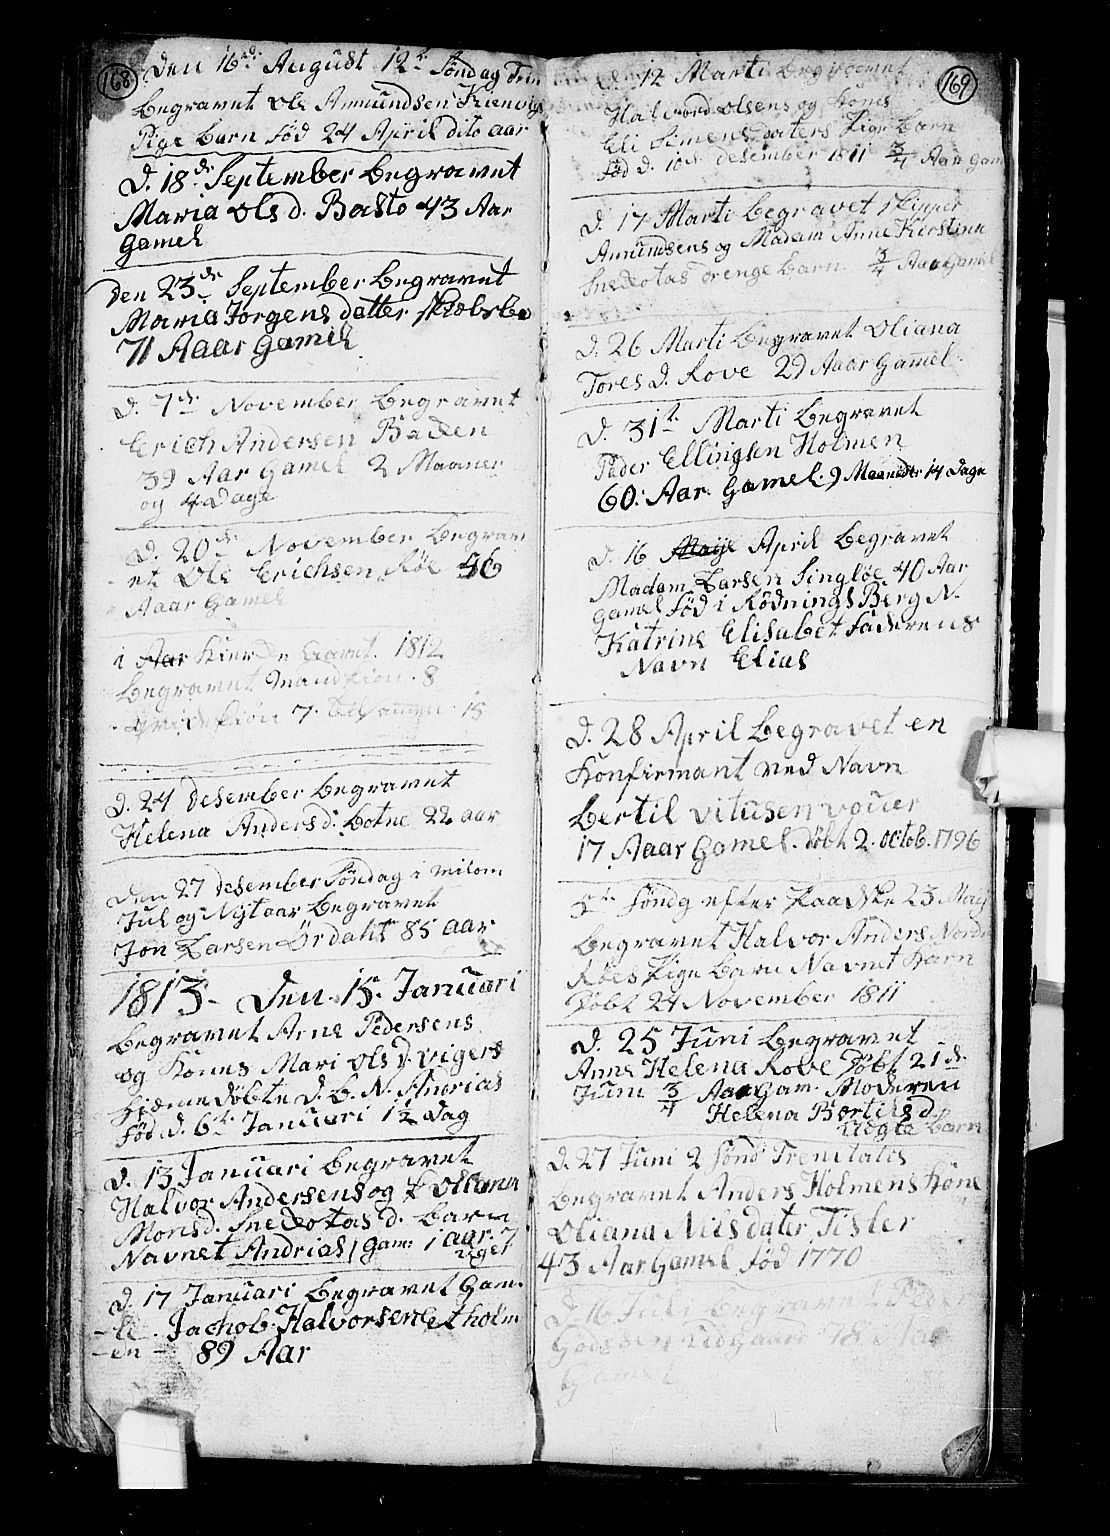 168
Den 16de August 12te Søndag Trin
begravet Ole Amundsen
Pige barn fød 24 April dito aar
D. 18de September begravet
Maria Ols d. Basto 43 Aar
Gamel
Den 23de September begravet
Maria Jørgens datter
71 Aaar Gamel
D. 7de November begravet
Erich Andersen Backen
39 Aar Gamel 2 Maaner
og 4 Dage
D. 20de November begrav
et Ole Erichsen Røe 46
Aaar Gamel
i Aar Kierke Aaret. 1812
begravet Mandkiøn. 8
Kiøn 7. tilsamen. 15
D. 24 desember begravet
Helena Anders d. Botne 22 aar
Den 27 desember Søndag i milom
Jul og Nytaar begravet
Jon Larsen Ørdahl 85 aar
1813. Den 15. Januari
begravet Arne Pedersens
og Kones Mari Ols d. Vigers
Hiemedøbte D. b. N. Andrias
Fød d. 6te Januari 1½ Dag
D. 13 Januari begravet
Halvor Andersens og Oliana
Mons d. Snekotas d. barn
Navnet Andrias / Gam: 1 aar. 7
uger
D. 17 Januari begravet Gam-
le. Jachob Halvorsen etholm
en 89 Aar
169
d. 12 Marti begravet
Halvord Olsens og Kones
Eli Simens daters Pige barn
fød d. 10de desember 1811 3/4 Aar Gam
D. 17 Marti begravet skipper
Amundsens og Madam Anne Kirstina
Snekotas drenge barn 3/4 Aar Gamel
D. 26 Marti begravet Oliana
Tores d. Rove 29 Aaar Gamel.
D. 31te Marti begravet
Peder Ellingsen Holmen
60. Aar. Gamel. 9 Maaneder 14 Dage
D. 16 Maije April begravet
Madam Larsen Singløe 40 Aar
Gamel fød i Rødnings Berg N.
Katrine Elisabet Faderens
Navn Elias
D. 28 April begravet en
Konfirmant ved Navn
Bertil Vitusen
17 Aaar Gamel. døbt 2. octob. 1796
Søndg efter Paadske 23 Maij
begravet Halvor Anders Nordr
Røes Pige barn Navnet Karn
Døbt 24 November 1811
D. 25 Juni begravet
Anne Helena Rove Døbt 21de
Juni 3/4 Aaar Gam. Moderen
Helena Bertils d.
Uegte barn
D. 27 Juni 2 Sønd Trenitatis
begravet Anders Holmens Kone
Oliana Nilsdater Tisler
43 Aar Gamel fød 1770
D. 16 Juli begravet Peder
18
Gamel